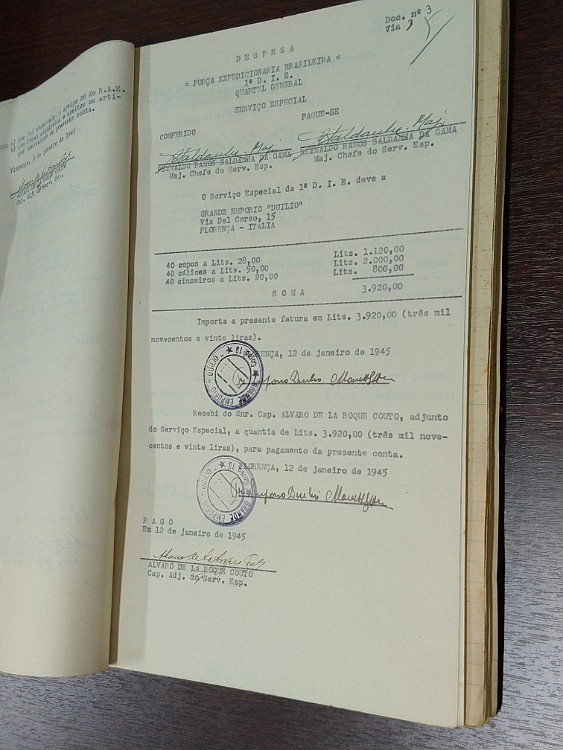 Doc. nº 3
Via 3
DESPESA
= FORÇA EXPEDICIONARIA BRASILEIRA =
1ª D. I. E.
QUARTEL GENERAL
SERVIÇO ESPECIAL
CONFERIDO
PAGUE-SE
REYNALDO RAMOS SALDANHA DA GAMA
Maj. Chefe do Serv. Esp.
REYNALDO RAMOS SALDANHA DA GAMA
Maj. Chefe do Serv. Esp.
O Serviço Especial da 1ª D. I. E. deve a
GRANDE EMPORIO "DUILIO"
Via Del Corso, 15
FLORENÇA - ITÁLIA
40 copos a Lits. 28,00 Lits. 1.120,00
40 cálices a Lits. 50,00 Lits. 2.000,00
40 cinzeiros a Lits. 20,00 Lits. 800,00
SOMA 3.920,00
Importa a presente fatura em Lits. 3.920,00 (três mil
novecentos e vinte liras).
FLORENÇA, 12 de janeiro de 1945
Recebi do Snr. Cap. ALVARO DE LA ROQUE COUTO, adjunto
do Serviço Especial, a quantia de Lits. 3.920,00 (três mil nove-
centos e vinte liras), para pagamento da presente conta.
FLORENÇA, 12 de janeiro de 1945
PAGO
Em 12 de janeiro de 1945
ALVARO DE LA ROQUE COUTO
Cap. Adj. do Serv. Esp.